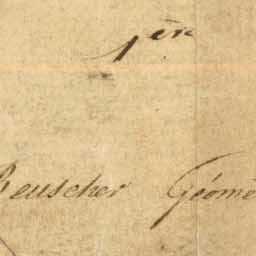 1ère
Beuscher Géomè